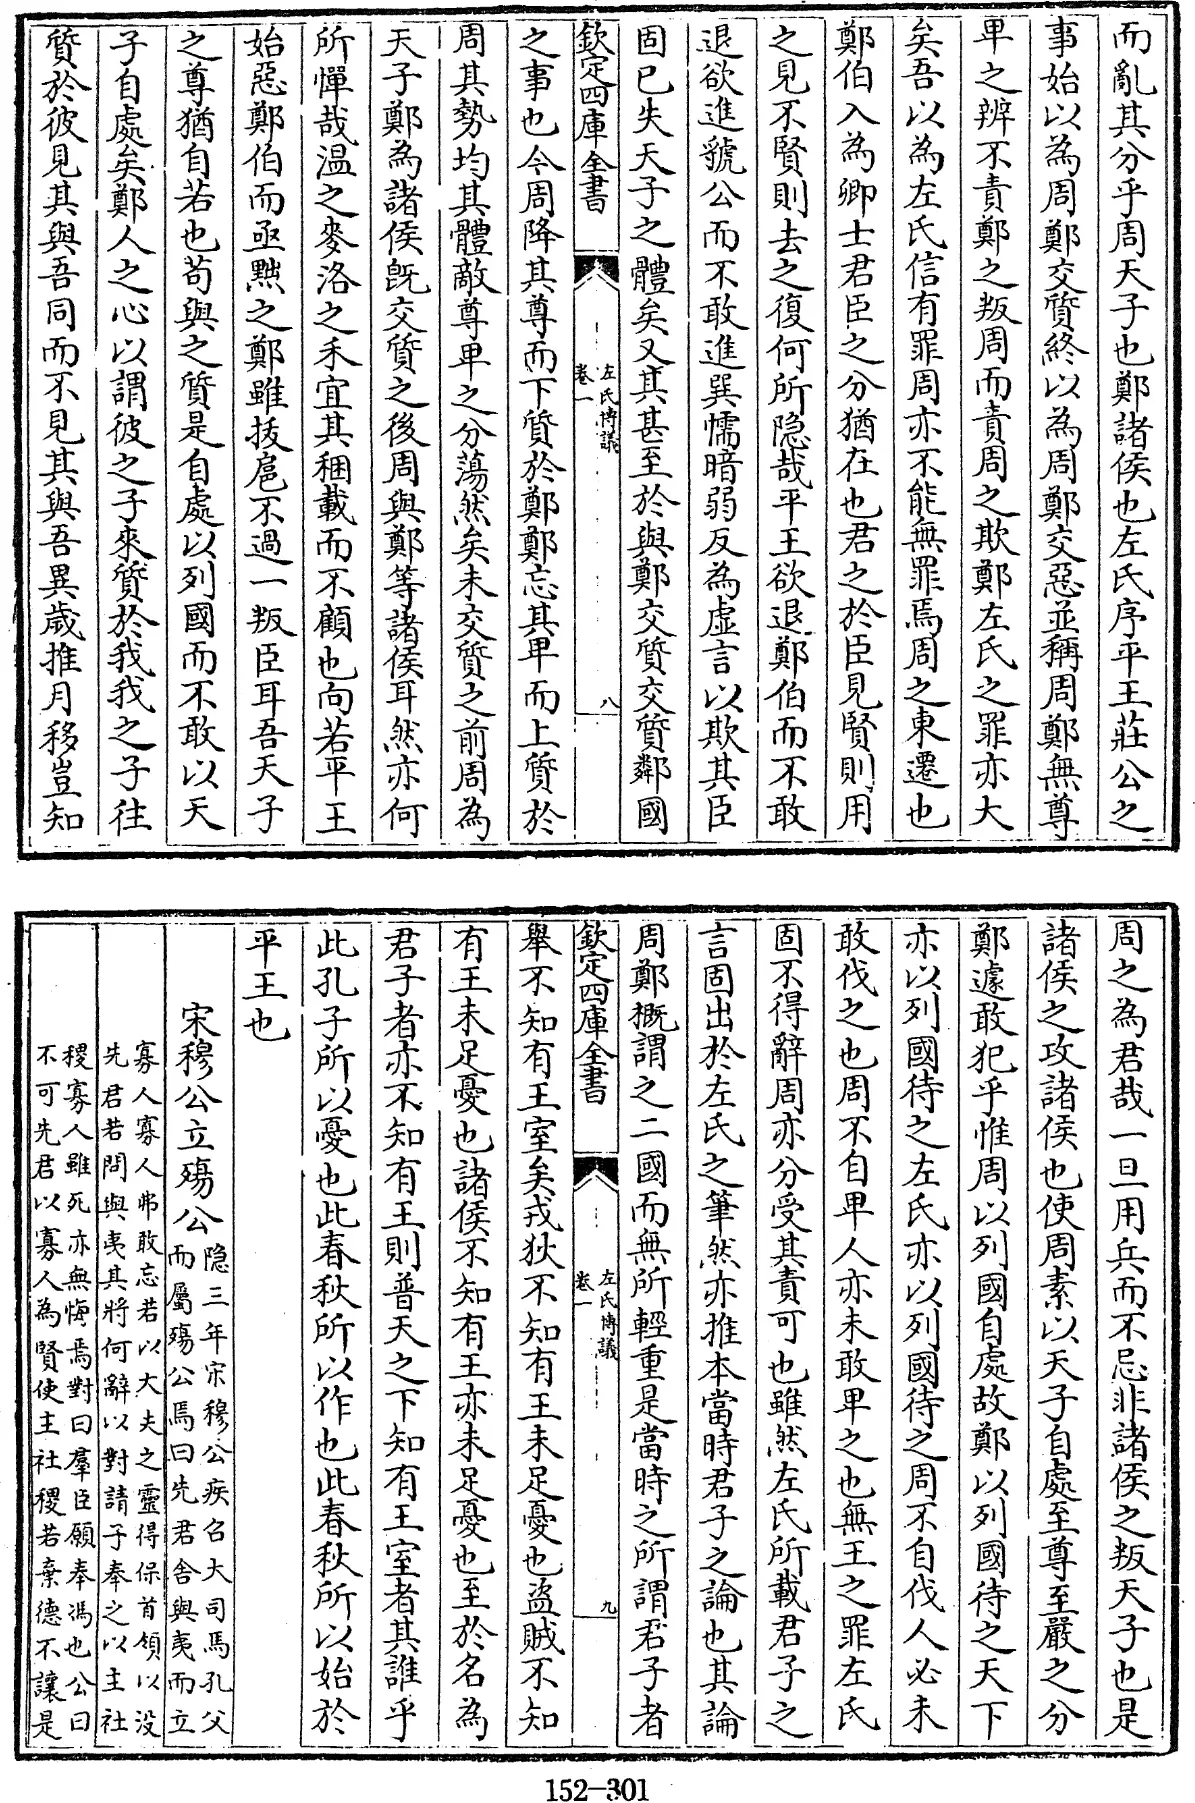 而亂其分乎周天子也鄭諸侯也左氏序平王莊公之
事始以為周鄭交質終以為周鄭交惡並稱周鄭無尊
卑之辨不責鄭之叛周而責周之欺鄭左氏之罪亦大
矣吾以為左氏信有罪周亦不能無罪焉周之東遷也
鄭伯入為卿士君臣之分猶在也君之於臣見賢則用
之見不賢則去之復何所隐哉平王欲退鄭伯而不敢
退欲進虢公而不敢進巽懦暗弱反為虚言以欺其臣
固已失天子之體矣又其甚至於與鄭交質交質鄰國
欽定四庫全書
左氏博議
卷一
八
之事也今周降其尊而下質於鄭鄭忘其卑而上質於
周其勢均其體敵尊卑之分蕩然矣未交質之前周為
天子鄭為諸侯既交質之後周與鄭等諸侯耳然亦何
所憚哉温之麥洛之禾宜其稇載而不顧也向若平王
始惡鄭伯而亟黜之鄭雖拔扈不過一叛臣耳吾天子
之尊猶自若也苟與之質是自處以列國而不敢以天
子自處矣鄭人之心以謂彼之子來質於我我之子往
質於彼見其與吾同而不見其與吾異歲推月移豈知
周之為君哉一旦用兵而不忌非諸侯之叛天子也是
諸侯之攻諸侯也使周素以天子自處至尊至嚴之分
鄭遽敢犯乎惟周以列國自處故鄭以列國待之天下
亦以列國待之左氏亦以列國待之周不自伐人必未
敢伐之也周不自卑人亦未敢卑之也無王之罪左氏
固不得辭周亦分受其責可也雖然左氏所載君子之
言固出於左氏之筆然亦推本當時君子之論也其論
周鄭概謂之二國而無所輕重是當時之所謂君子者
欽定四庫全書
左氏博議
卷一
九
舉不知有王室矣戎狄不知有王未足憂也盜賊不知
有王未足憂也諸侯不知有王亦未足憂也至於名為
君子者亦不知有王則普天之下知有王室者其誰乎
此孔子所以憂也此春秋所以作也此春秋所以始於
平王也
宋穆公立殤公
隐三年宋穆公疾召大司馬孔父
而屬殤公焉曰先君舍與夷而立
寡人寡人弗敢忘若以大夫之靈得保首領以没
先君若問與夷其將何辭以對請子奉之以主社
稷寡人雖死亦無悔焉對曰羣臣願奉馮也公曰
不可先君以寡人為賢使主社稷若棄德不讓是
152-301